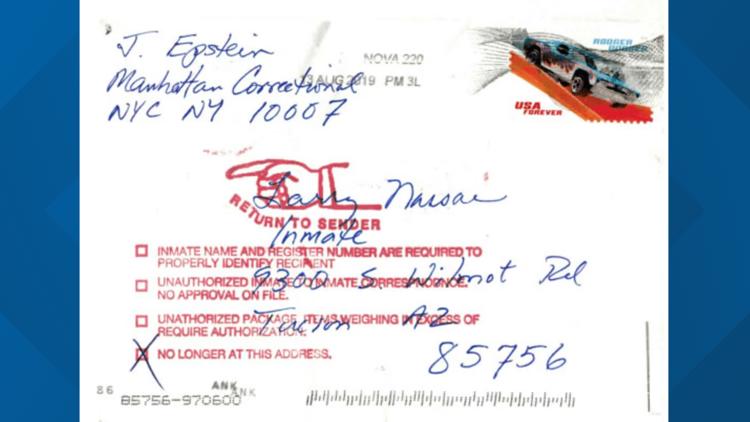 J. Epstein
Manhattan Correctional
NYC NY 10007
NOVA 220
13 AUG 2019 PM 3L
RODGER DODGER
USA
FOREVER
RETURN TO SENDER
Larry Nassar
Inmate
9300 S. Wilmot Rd
Tucson AZ
85756
INMATE NAME AND REGISTER NUMBER ARE REQUIRED TO
PROPERLY IDENTIFY RECIPIENT
UNAUTHORIZED INMATE TO INMATE CORRESPONDENCE.
NO APPROVAL ON FILE.
UNATHORIZED PACKAGE, ITEMS WEIGHING IN EXCESS OF
REQUIRE AUTHORIZATION.
X NO LONGER AT THIS ADDRESS.
86
ANK
ANK
85756-970600